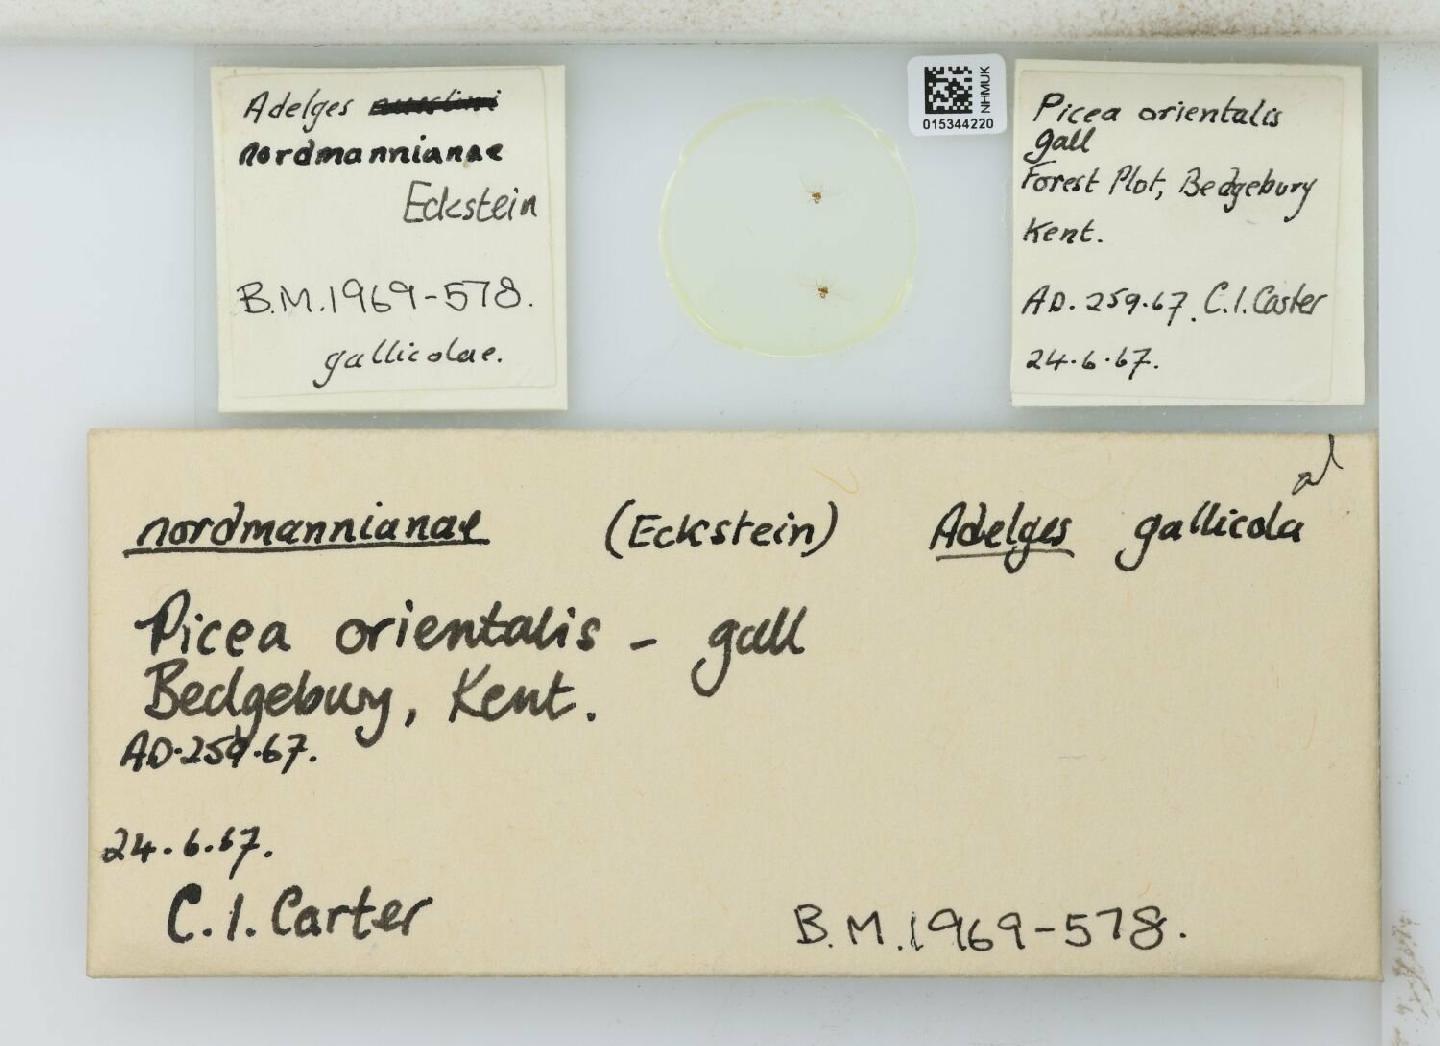 Adelges
nordmannianae
Eckstein
B.M.1969-578.
gallicolae.
NHMUK
015344220
Picea orientalis
gall
Forest Plot, Bedgebury
Kent.
AD. 259.67. C.I. Carter
24.6.67.
nordmannianae (Eckstein) Adelges gallicola
Picea orientalis - gall
Bedgebury, Kent.
AD.259.67.
24.6.67.
C.I. Carter
B.M.1969-578.